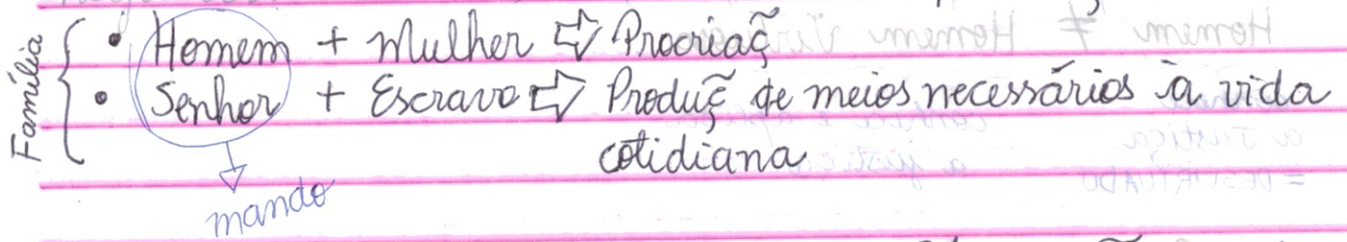 Família
• Homem + Mulher ⇨ Procriaç̃
• Senhor + Escravo ⇨ Produç̃ de meios necessários à vida
cotidiana
mando